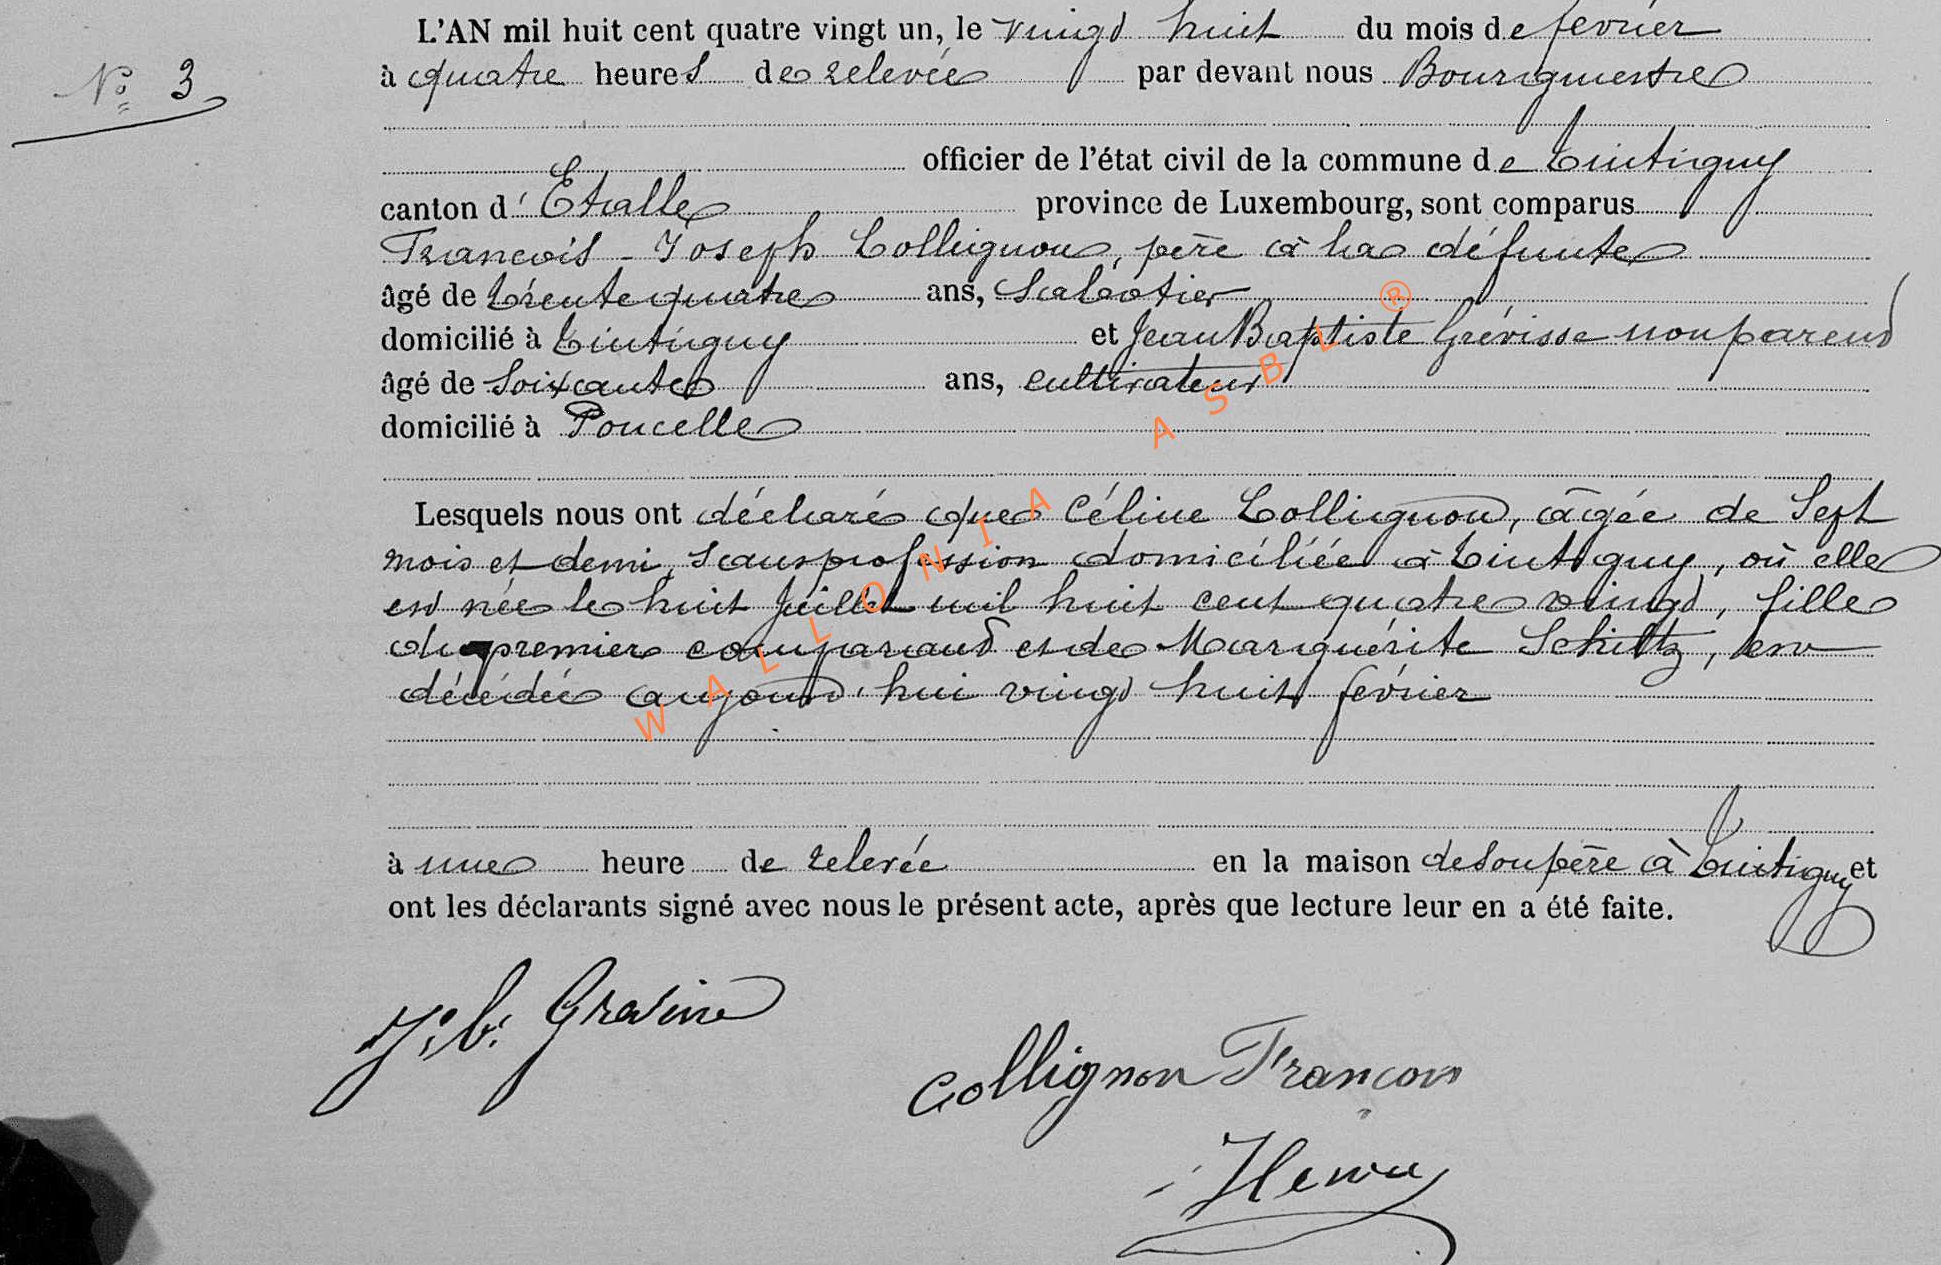 L'AN mil huit cent quatre vingt un, le vingt huit du mois de fevrier
N° 3
à quatre heures de relevée par devant nous Bourgmestre
officier de l'état civil de la commune de Tintigny
canton d'Etalle province de Luxembourg, sont comparus
Francois-Joseph Collignon, père à la défunte
âgé de trente quatre ans, Sabotier
domicilié à Tintigny et Jean Baptiste Grévisse non parent
âgé de soixante ans, cultivateur
domicilié à Poncelle
Lesquels nous ont déclaré que Céline Collignon, âgée de Sept
mois et demi, sans profession domiciliée à Tintigny, où elle
est née le huit Juillet mil huit cent quatre vingt, fille
du premier comparant et de Marguérite Schiltz, est
décédée aujourd'hui vingt huit février
à une heure de relevée en la maison de son père à Tintigny et
ont les déclarants signé avec nous le présent acte, après que lecture leur en a été faite.
J. b. Grévisse
Collignon Francois
Henry
WALLONIA ASBL ®